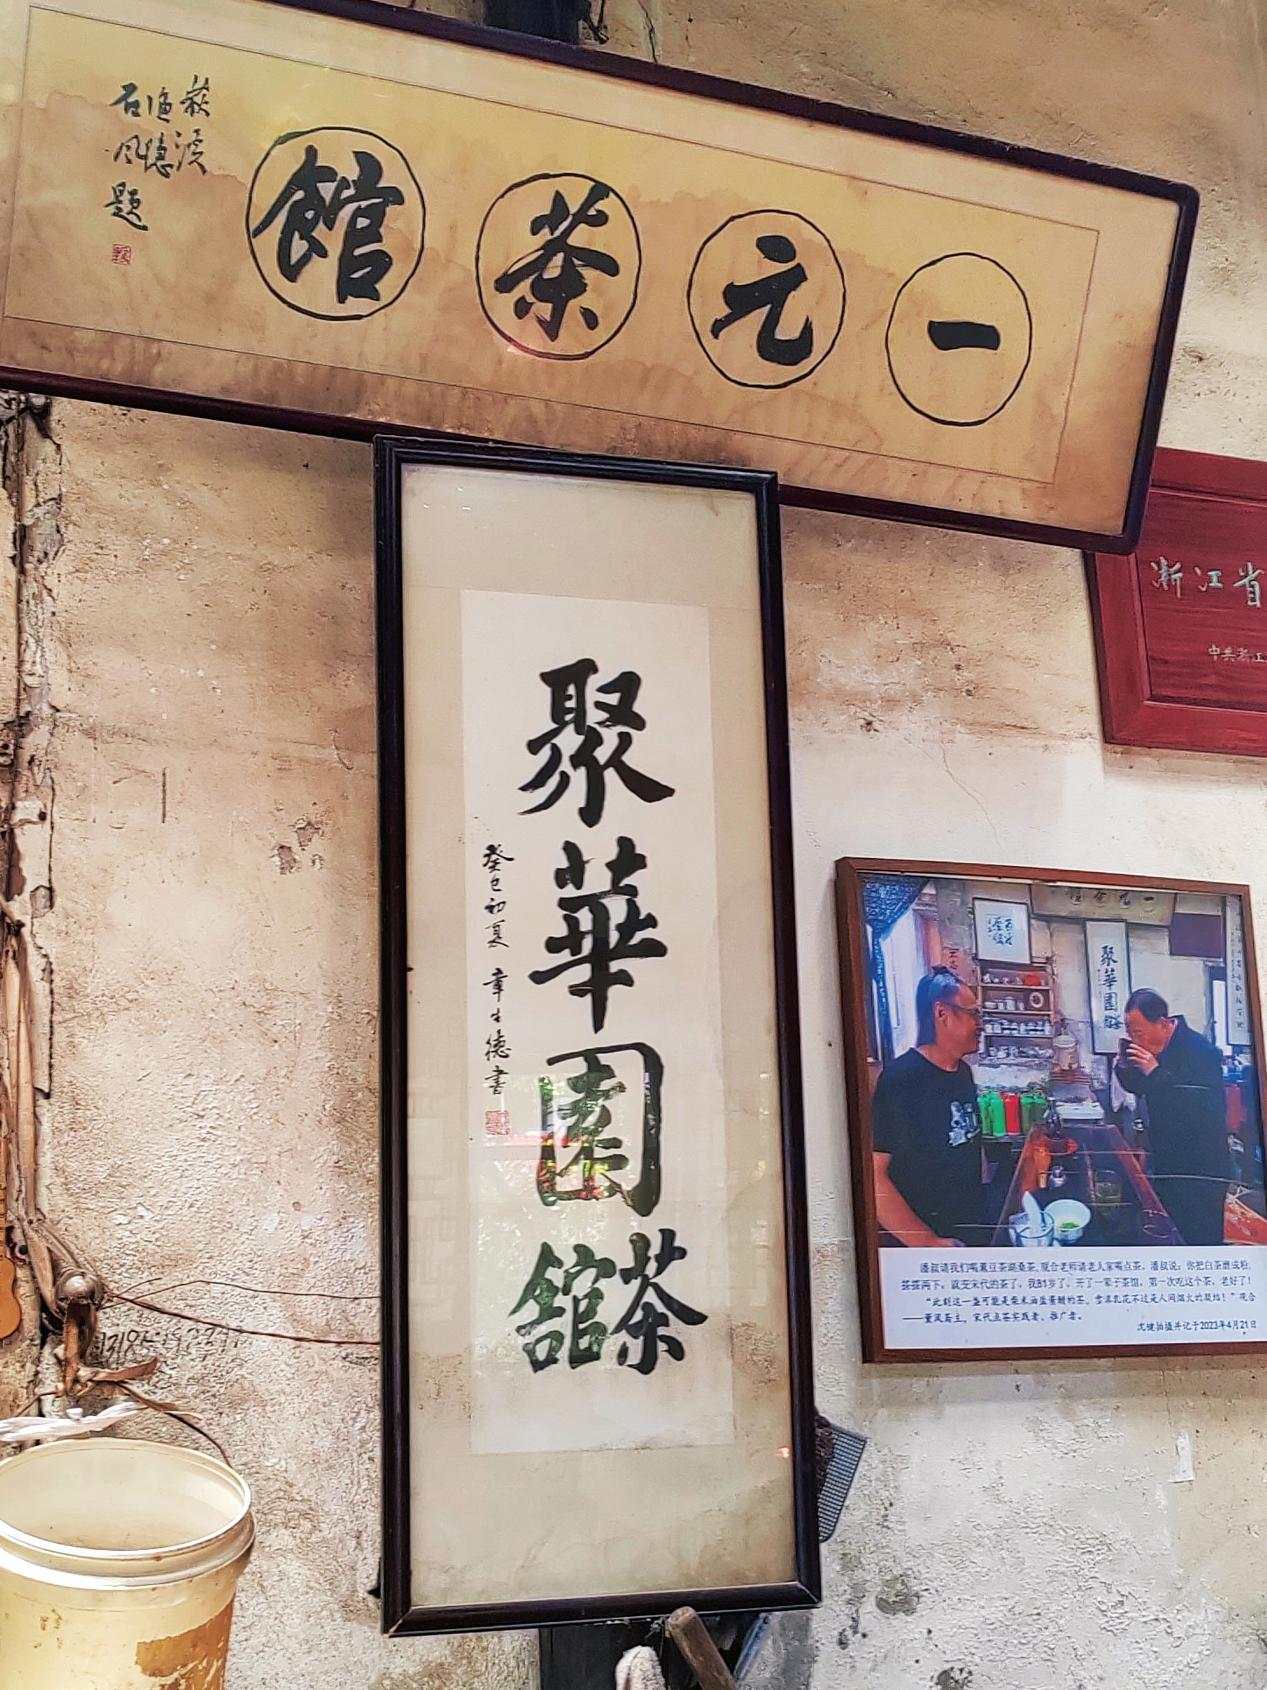 一元茶館
荻溪
遍德
古風題
聚華園茶館
癸巳初夏 章生德書
浙江省
中共浙江
一元茶館
聚華園茶館
潘叔请我们喝薰豆茶跳桑茶,敬合老师请老人家喝点茶。潘叔说:你把白茶磨成粉,
搓搓两下,就变宋代的茶了,我81岁了,开了一辈子茶馆,第一次吃这个茶,老好了!
"此刻这一盏可能是柴米油盐酱醋的茶,雪沫乳花不过是人间烟火的凝结!"观合
——董岚岛主,宋代点茶实践者、推广者。
沈健拍摄并记于2023年4月21日